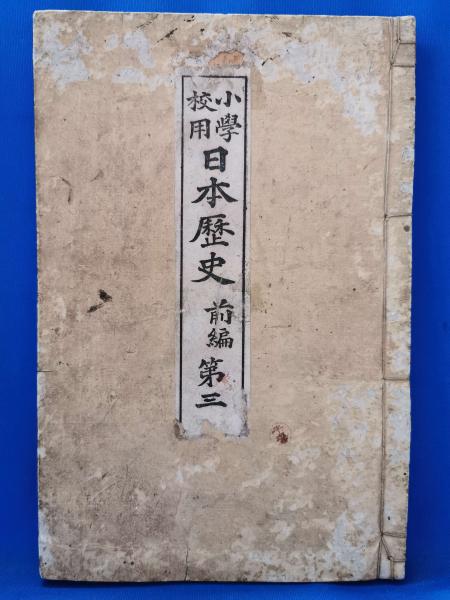 小學校用日本歴史前編第三